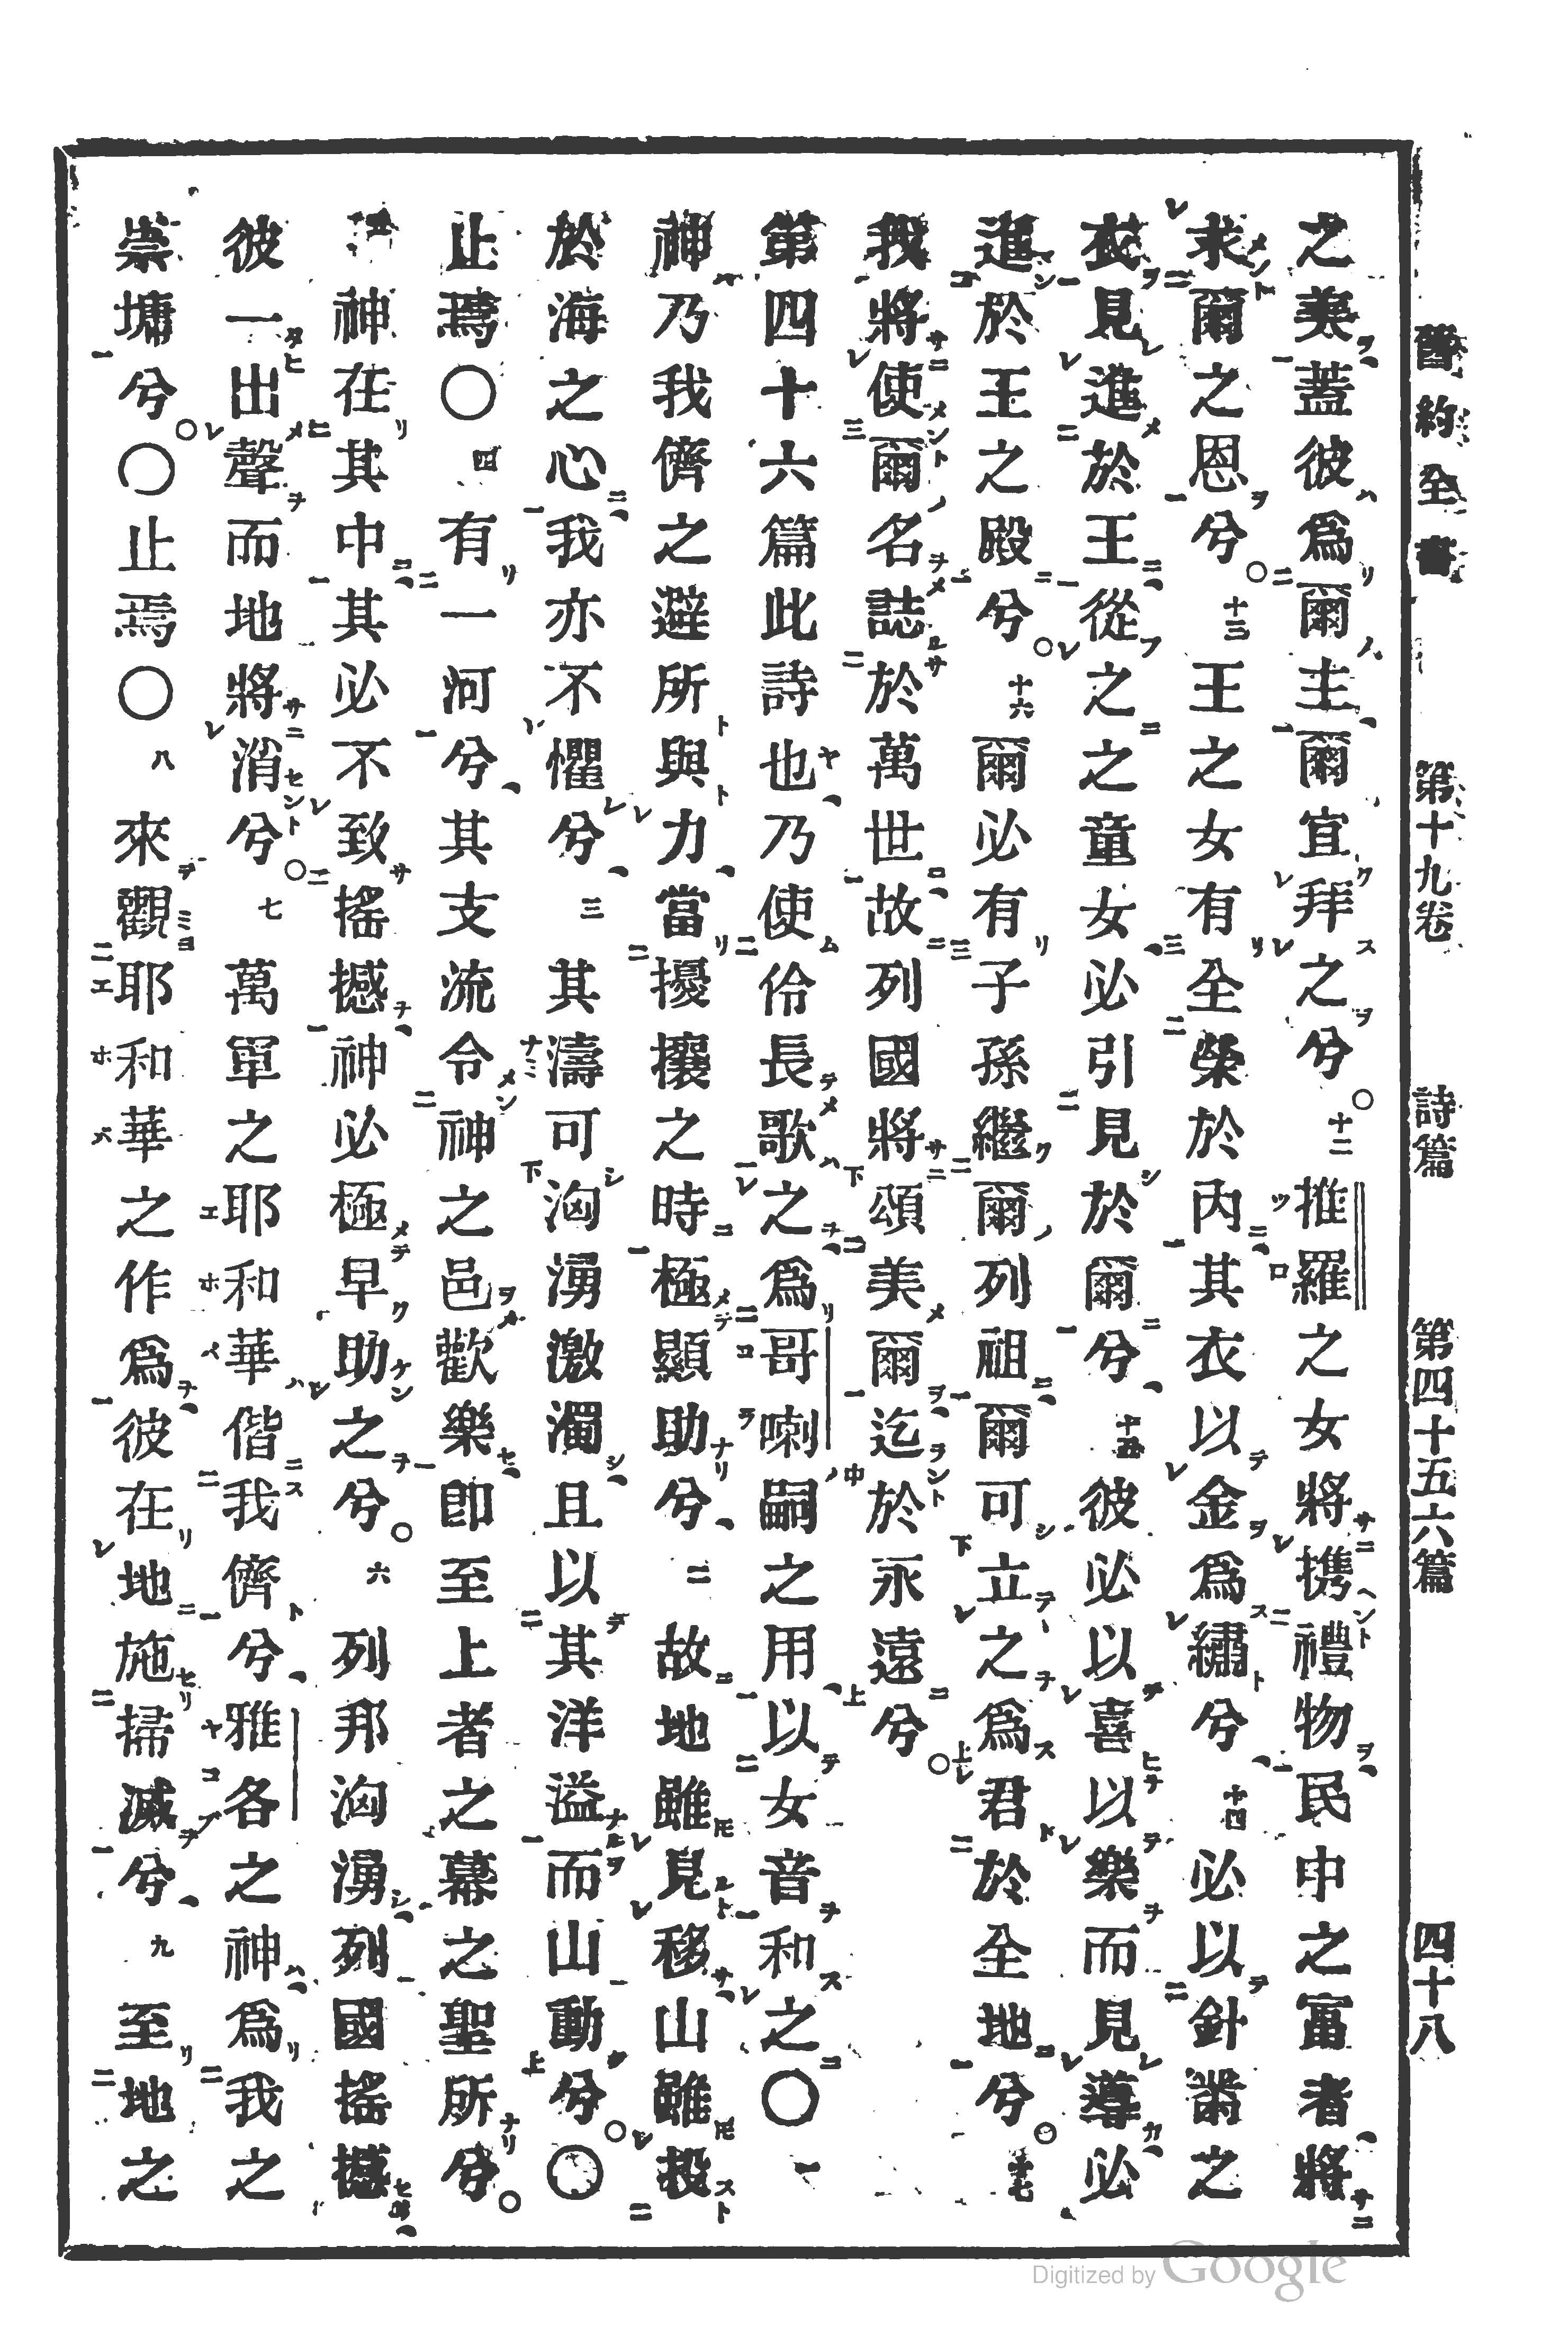 舊約全書 第十九卷 詩篇 第四十五六篇 四十八
之美蓋彼爲爾主爾宜拜之兮○十二推羅之女將携禮物民中之富者將
求爾之恩兮○十三王之女有全榮於內其衣以金爲繡兮十四必以針黹之
衣見進於王從之之童女必引見於爾兮十五彼必以喜以樂而見導必
進於王之殿兮○十六爾必有子孫繼爾列祖爾可立之爲君於全地兮○十七
我將使爾名誌於萬世故列國將頌美爾迄於永遠兮○
第四十六篇此詩也乃使伶長歌之爲哥喇嗣之用以女音和之○一
神乃我儕之避所與力當擾攘之時極顯助兮二故地雖見移山雖投
於海之心我亦不懼兮三其濤可洶湧激濁且以其洋溢而山動兮○○
止焉○四有一河兮其支流令神之邑歡樂卽至上者之幕之聖所兮○
五神在其中其必不致搖撼神必極早助之兮○六列邦洶湧列國搖撼
彼一出聲而地將消兮○七萬軍之耶和華偕我儕兮雅各之神爲我之
崇墉兮○○止焉○八來觀耶和華之作爲彼在地施掃滅兮九至地之
Digitized by Google